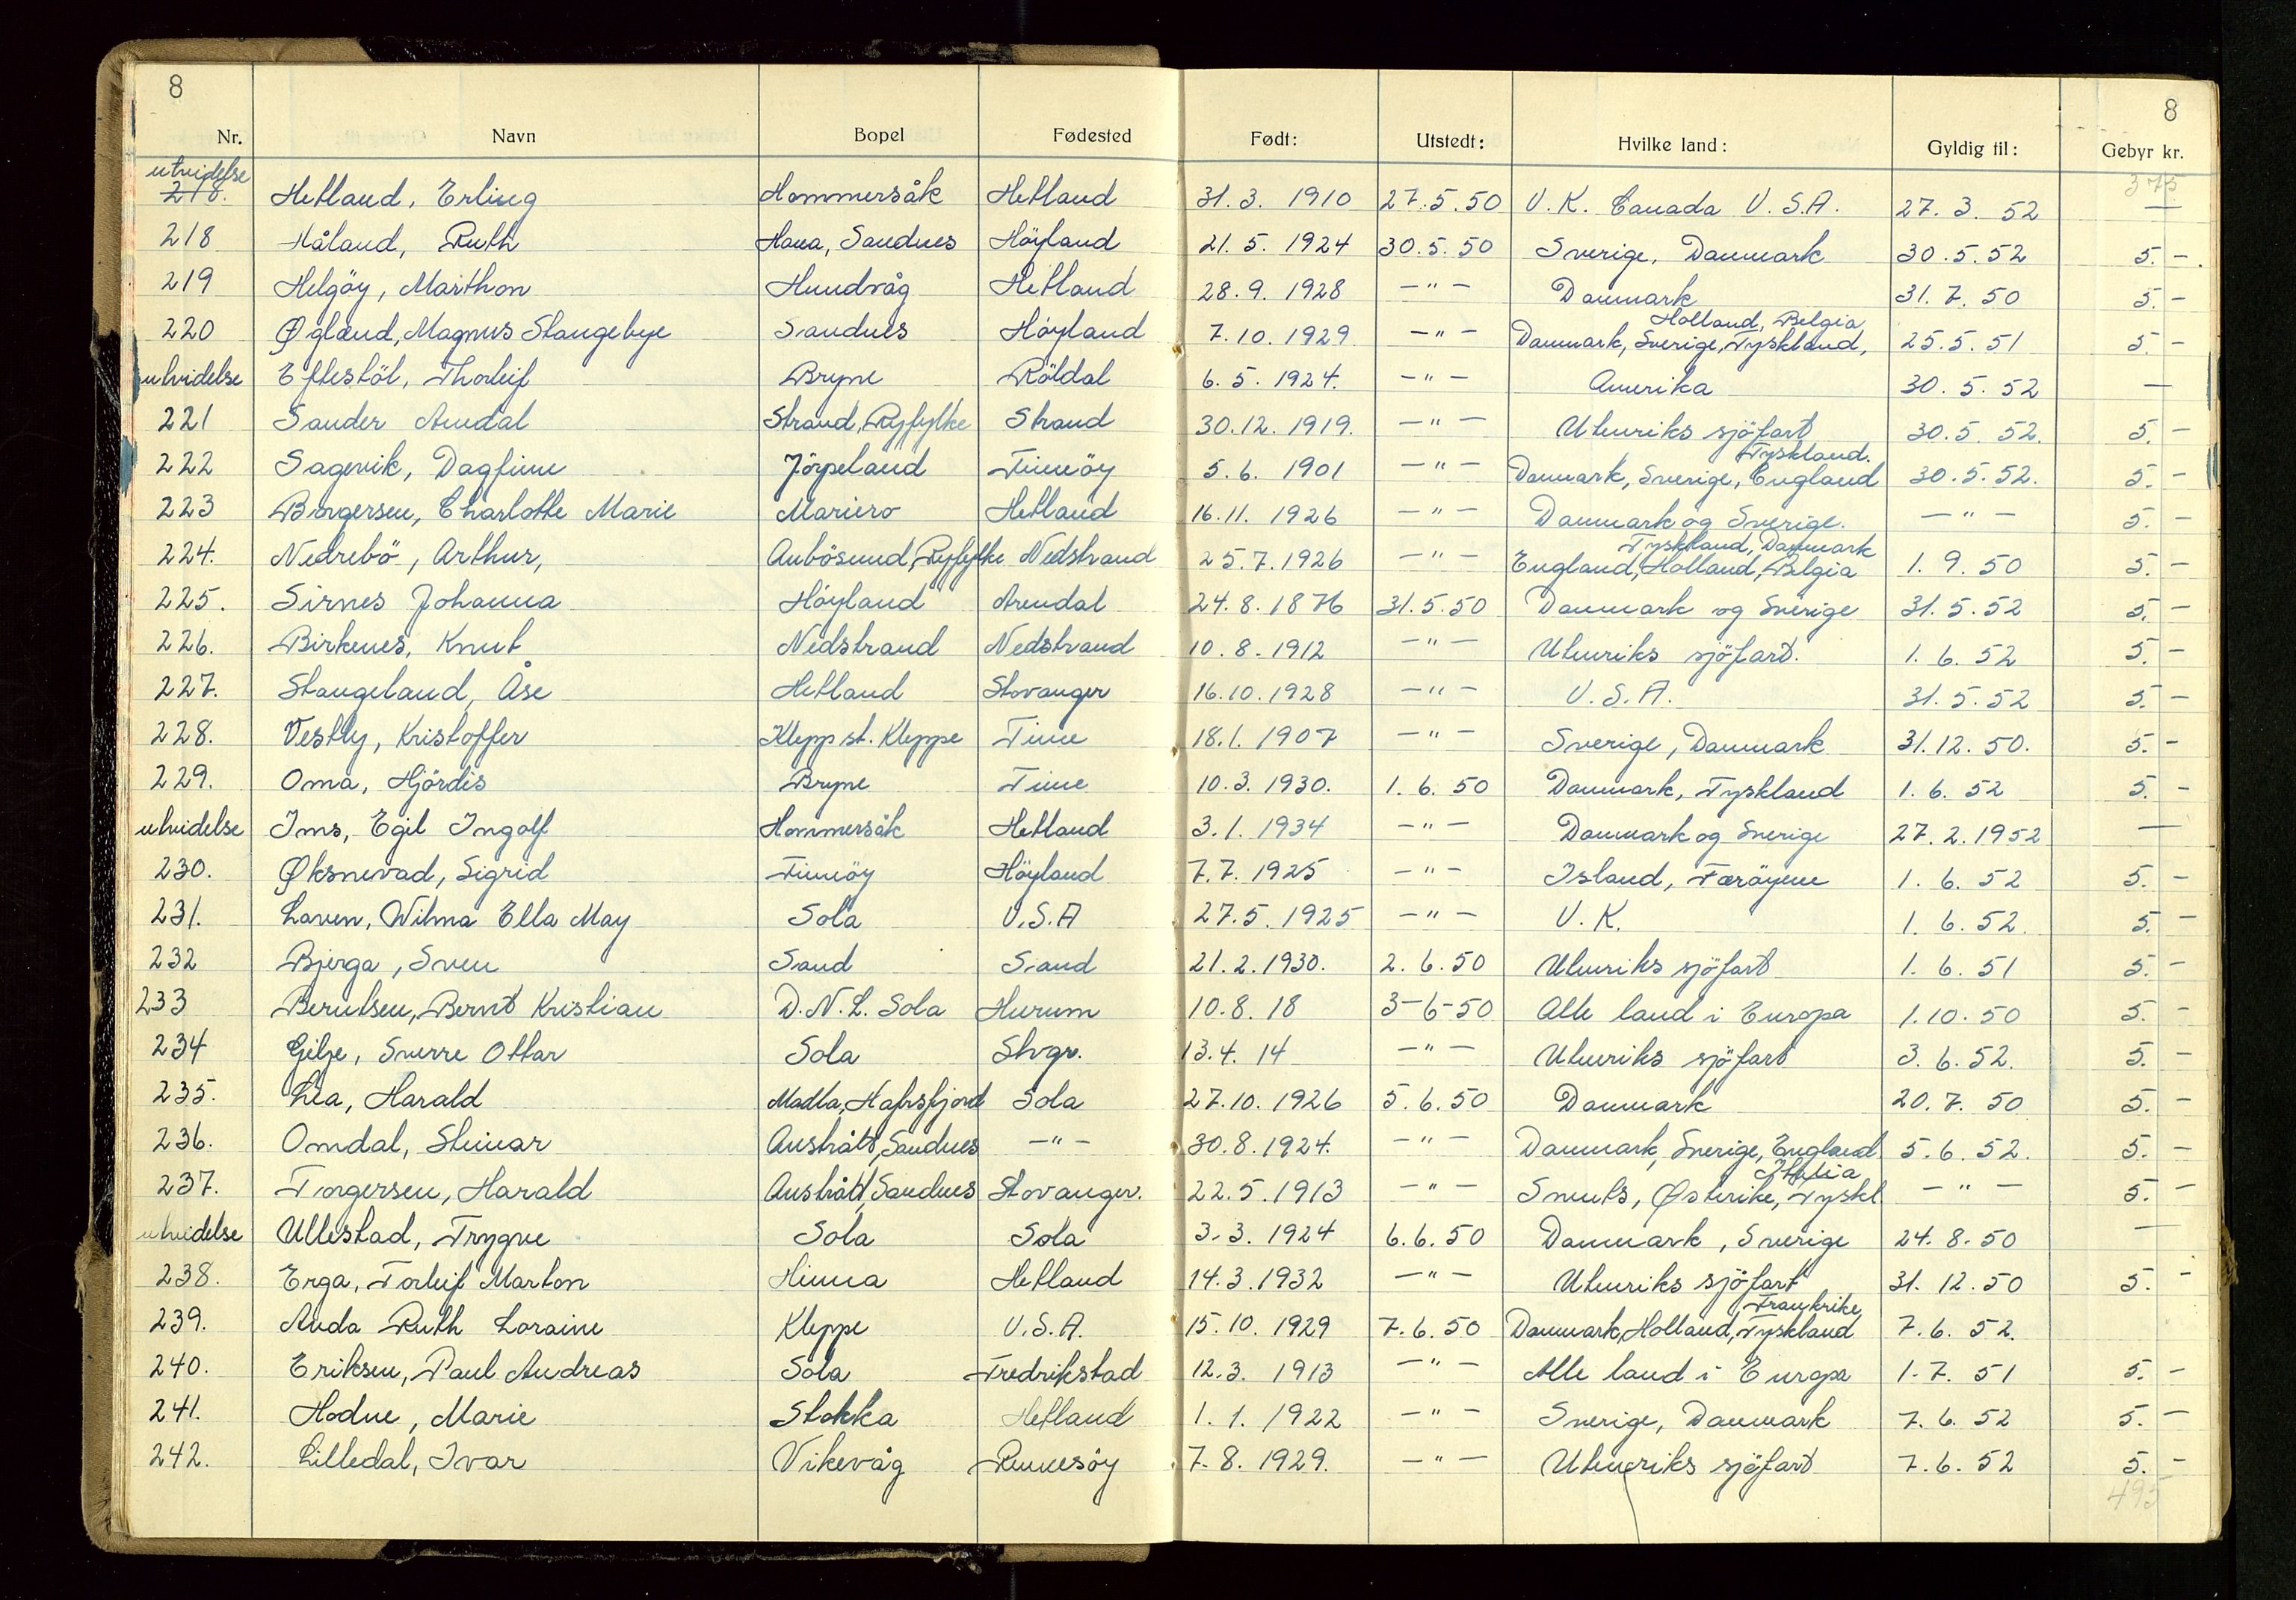 8
8
Nr. Navn Bopel Fødested Født: Utstedt: Hvilke land: Gyldig til: Gebyr kr.
375
utvidelse Hetland, Erling Hommersåk Hetland 31.3. 1910 27.5.50 U.K. Canada U.S.A. 27. 3. 52 —
218 Håland, Ruth Hana, Sandnes Höyland 21.5. 1924 30.5.50 Sverige, Danmark 30.5.52 5. -
219 Helgöy, Marthon Hundvåg Hetland 28.9. 1928 -"- Danmark 31.7. 50 5. -
Holland, Belgia
220 Øgland, Magnus Stangebye Sandnes Höyland 7.10. 1929 -"- Danmark, Sverige, Tyskland, 25.5.51 5. -
utvidelse Eftestöl, Thorleif Bryne Röldal 6.5. 1924. -"- Amerika 30.5.52 —
221 Sander Amdal Strand, Ryfylke Strand 30.12. 1919. -"- Utenriks sjöfart 30.5. 52. 5. -
Tyskland.
222 Sagevik, Dagfinn Jörpeland Finnöy 5.6. 1901 -"- Danmark, Sverige, England 30.5.52. 5. -
223 Borgersen, Charlotte Marie Mariero Hetland 16.11. 1926 -"- Danmark og Sverige. -"- 5. -
Tyskland, Danmark
224. Nedrebö, Arthur, Anbösund, Ryfylke Nedstrand 25.7.1926 -"- England, Holland, Belgia 1. 9. 50 5. -
225. Sirnes Johanna Höyland Arendal 24.8.1876 31.5.50 Danmark og Sverige 31.5.52 5. -
226. Birkenes, Knut Nedstrand Nedstrand 10.8.1912 -"- Utenriks sjöfart. 1. 6. 52 5. -
227. Stangeland, Åse Hetland Stavanger 16.10.1928 -"- U.S.A. 31.5.52 5. -
228. Vestly, Kristoffer Klepp st. Kleppe Time 18.1. 1907 -"- Sverige, Danmark 31.12.50. 5. -
229. Oma, Hjördis Bryne Time 10.3. 1930. 1.6. 50 Danmark, Tyskland 1. 6. 52 5. -
utvidelse Ims, Egil Ingolf Hommersåk Hetland 3.1. 1934 -"- Danmark og Sverige 27.2.1952 —
230. Øksnevad, Sigrid Finnöy Höyland 7.7. 1925 -"- Island, Færöyene 1. 6. 52 5. -
231. Laven, Wilma Ella May Sola U.S.A 27.5. 1925 -"- U.K. 1. 6. 52. 5. -
232 Bjerga, Sven Sand Sand 21.2.1930. 2.6.50 Utenriks sjöfart 1. 6. 51 5. -
233 Berntsen, Bernt Kristian D.N.L. Sola Hurum 10.8. 18 3-6-50 Alle land i Europa 1.10.50 5. -
234 Gilje, Sverre Ottar Sola Stvgr. 13.4. 14 -"- Utenriks sjöfart 3. 6. 52. 5. -
235. Lea, Harald Madla, Hafrsfjord Sola 27.10. 1926 5.6.50 Danmark 20.7. 50 5. -
236. Omdal, Steinar Austrått, Sandnes -"- 30.8.1924. -"- Danmark, Sverige, England 5.6.52. 5. -
Italia
237. Torgersen, Harald Austrått, Sandnes Stavanger. 22.5.1913 -"- Sveits, Østerike, Tyskl. -"- 5. -
utvidelse Ullestad, Trygve Sola Sola 3.3. 1924 6.6.50 Danmark, Sverige 24.8.50 —
238. Erga, Torleif Marton Hinna Hetland 14.3.1932 -"- Utenriks sjöfart 31. 12.50 5. -
Frankrike
239. Anda Ruth Loraine Kleppe U.S.A. 15.10. 1929 7.6.50 Danmark, Holland, Tyskland 7. 6. 52.
240. Eriksen, Paul Andreas Sola Fredrikstad 12.3. 1913 -"- Alle land i Europa 1.7. 51 5. -
241. Hodne, Marie Stokka Hetland 1. 1. 1922 -"- Sverige, Danmark 7.6. 52 5. -
242. Lilledal, Ivar Vikevåg Rennesöy 7.8. 1929. -"- Utenriks sjöfart 7.6. 52 5. -